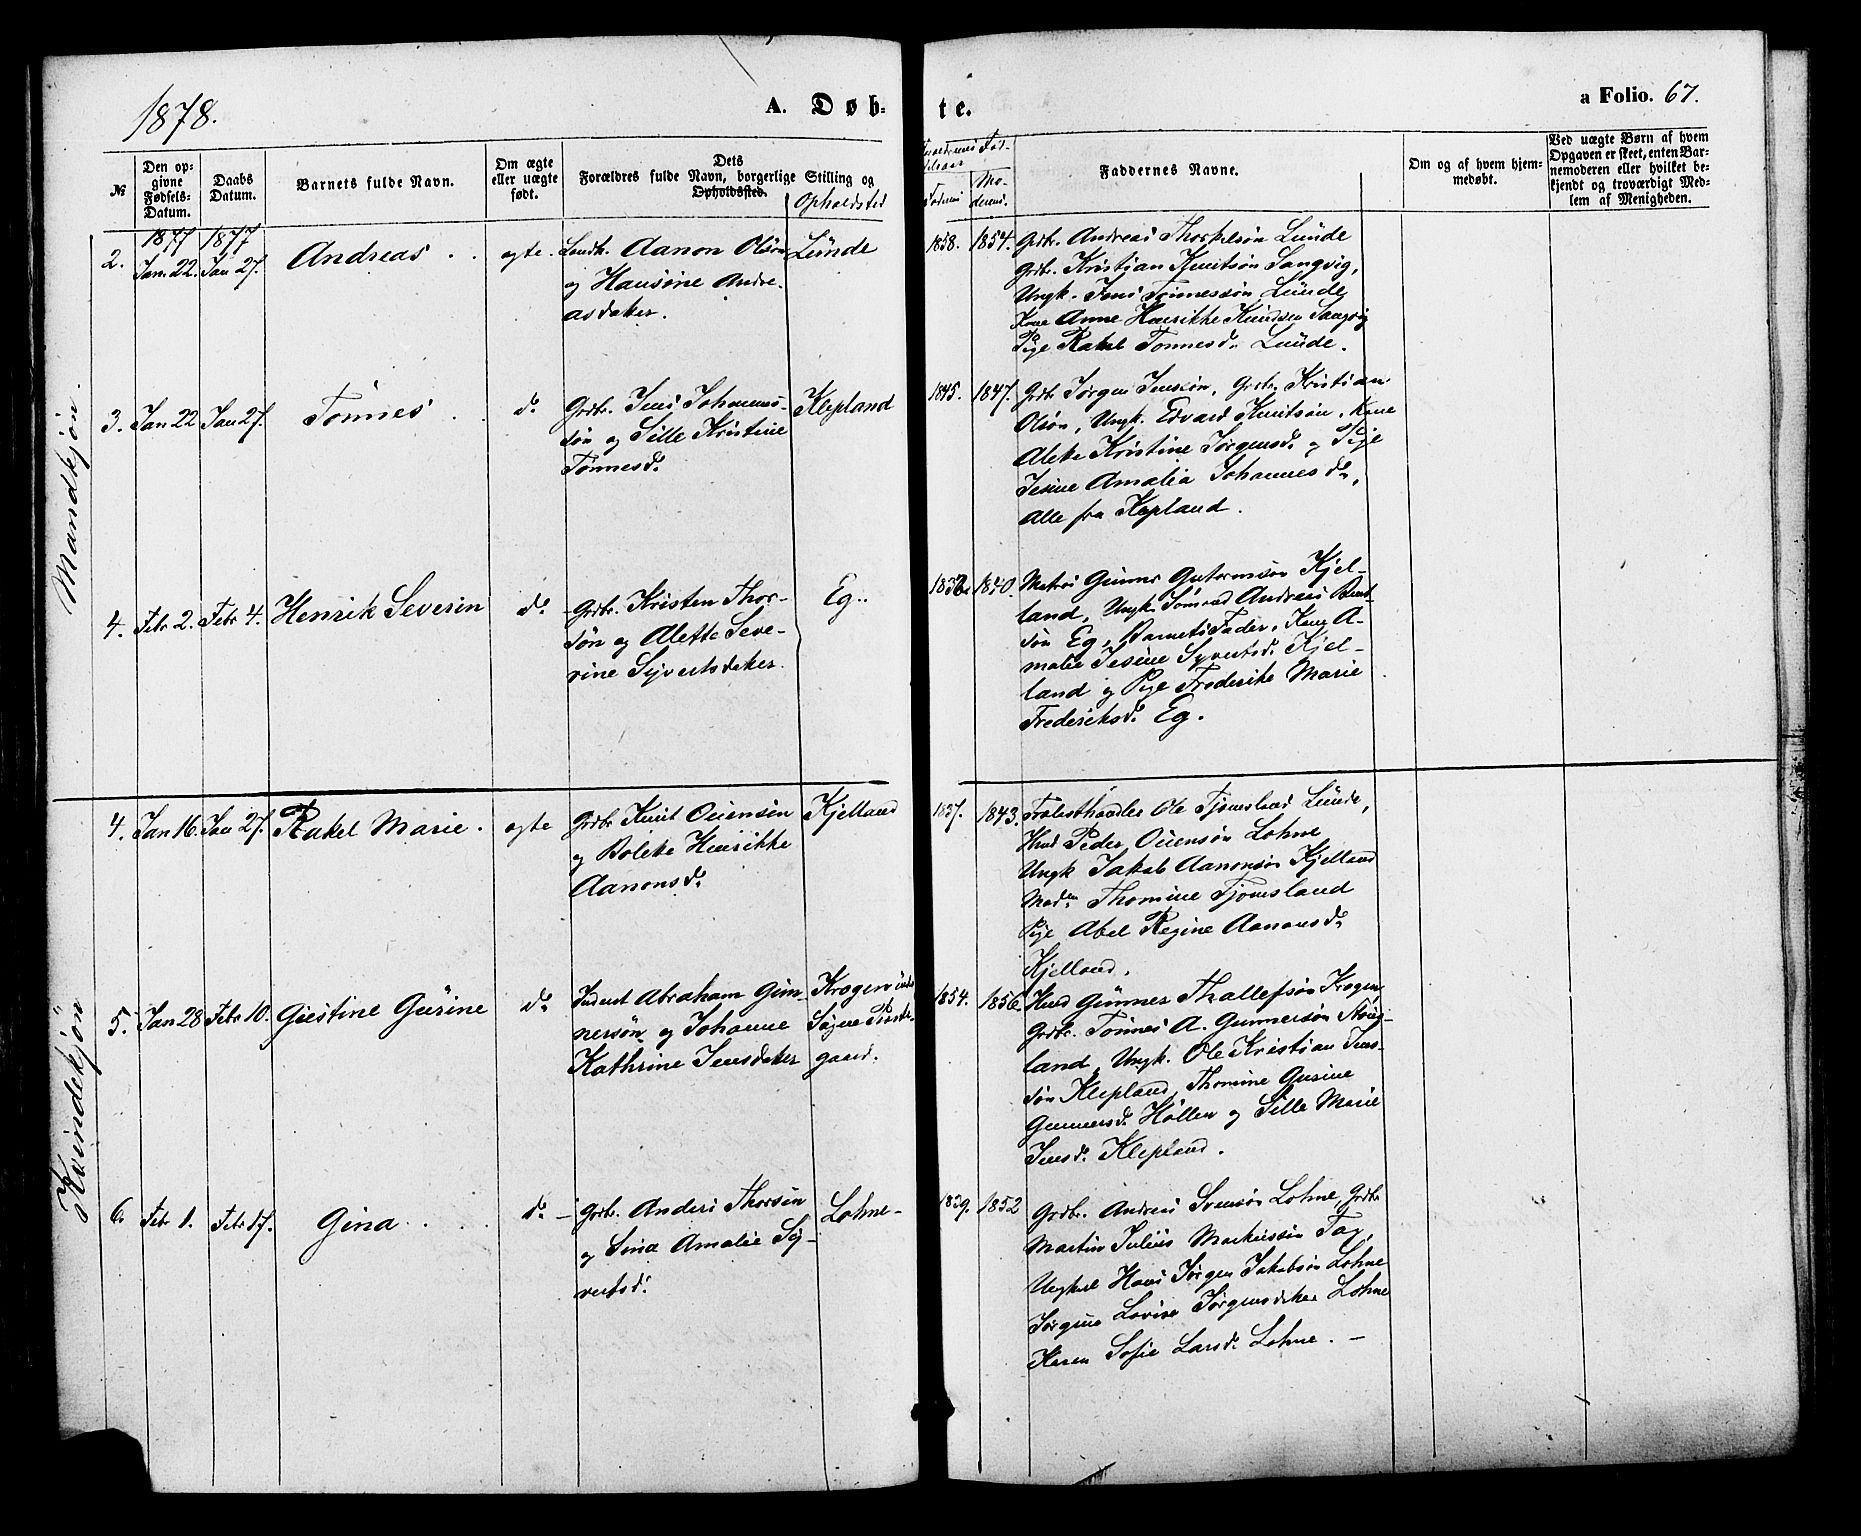 1878.
A. Døb-
te.
a Folio. 67.
№
Den op-
givne
Fødsels-
Datum.
Daabs
Datum.
Barnets fulde Navn.
Om ægte
eller uægte
født.
Dets
Forældres fulde Navn, borgerlige Stilling og
Opholdssted.
Opholdsted
Forældrenes Fød-
selsaar
Faderens
Mo-
derens.
Faddernes Navne.
Om og af hvem hjem-
medøbt.
Ved uægte Børn af hvem
Opgaven er skeet, enten Bar-
nemoderen eller hvilket be-
kjendt og troværdigt Med-
lem af Menigheden.
Mandkjøn.
2.
1877
Jan. 22.
1877
Jan 27.
Andreas
ægte.
Aanon Olsøn
og Hansine Andre-
asdatter.
Lunde
1858.
1854.
Grdbr. Andreas Thorkelsøn Lunde
Grdbr. Kristian Knutsøn Langvig,
Ungk. Jens Tønnessøn Lunde
Kone Anne Henrikke Knudsen Langvig
Pige Rakel Tønnesd. Lunde.
3.
Jan 22
Jan 27.
Tønnes
do
Grdbr. Jens Johannes-
søn og Sille Kristine
Tønnesd.
Klepland
1845.
1847.
Grdb Jørgen Jensøn, Grdbr. Kristian
Olsøn, Ungk. Edvard Knutsøn, Kone
Aleke Kristine Jørgensd. og Pige
Jesine Amalia Johannesd.,
Alle fra Klepland.
4.
Febr 2.
Febr 4.
Henrik Severin
do
Grdbr. Kristen Thor-
søn og Alette Seve-
rine Syvertsdatter.
Eg.
1840.
Matros Gunner Guttormsøn Kjel-
land, Ungk. Andreas
søn Eg, Barnets Fader, Kone A-
malie Jesine Syvertsd. Kjel-
land og Pige Frederike Marie
Frederiksd. Eg.
Kvindekjøn
4.
Jan 16.
Jan 27.
Rakel Marie.
ægte
Grdbr Knut Ouensen
og Boleke Henrikke
Aanonsd.
Kjelland
1837.
1843.
Ole Tjomsland Lunde,
Peder Ouensøn Lohne
Ungk Jakob Aanonsøn Kjelland
Madm Thomine Tjomsland
Pige Abel Regine Aanonsd.
Kjelland.
5.
Jan 28
Febr 10.
Giestine Gusine
do
Inderst Abraham Gun-
nersøn og Johanne
Kathrine Jensdatter
Søgne Præste-
gaard.
1854.
1856.
Gunner Thallefsøn
Grdbr. Tønnes A. Gunnersøn
land, Ungk. Ole Kristian Jens-
søn Klepland, Thomine Gusine
Gunnersd. Høllen og Sille Marie
Jensd. Klepland.
6.
Febr 1.
Febr 17.
Gina
do
Grdbr. Anders Thorsen
og Sina Amalie Sy-
vertsd.
Lohne
1839.
1852
Grdbr. Andreas Svensøn Lohne, Grdbr
Martin Julius Markussøn Tag,
Ungkar Hans Jørgen Jakobsøn Lohne
Jørgine Lovise Jørgensdatter Lohne
Karen Sofie Larsd. Lohne. —